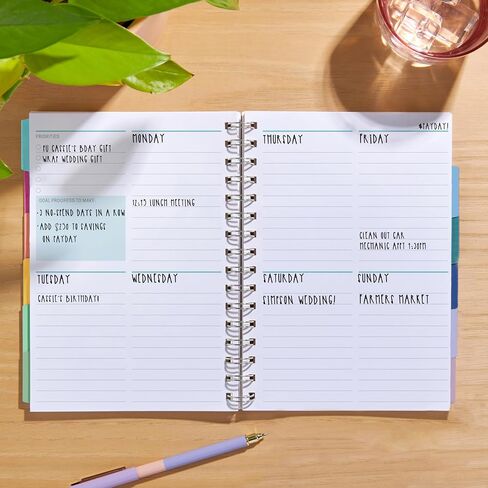 PRIORITIES
PU CASSIE'S BDAY GIFT
WRAP WEDDING GIFT
GOAL PROGRESS TO MAKE
-3 NO-SPEND DAYS IN A ROW
-ADD $250 TO SAVINGS
ON PAYDAY
MONDAY
12:45 LUNCH MEETING
TUESDAY
CASSIE'S BIRTHDAY!
WEDNESDAY
THURSDAY
$PAYDAY!
FRIDAY
CLEAN OUT CAR
MECHANIC APPT 4:30PM
SATURDAY
SIMPSON WEDDING!
SUNDAY
FARMERS MARKET